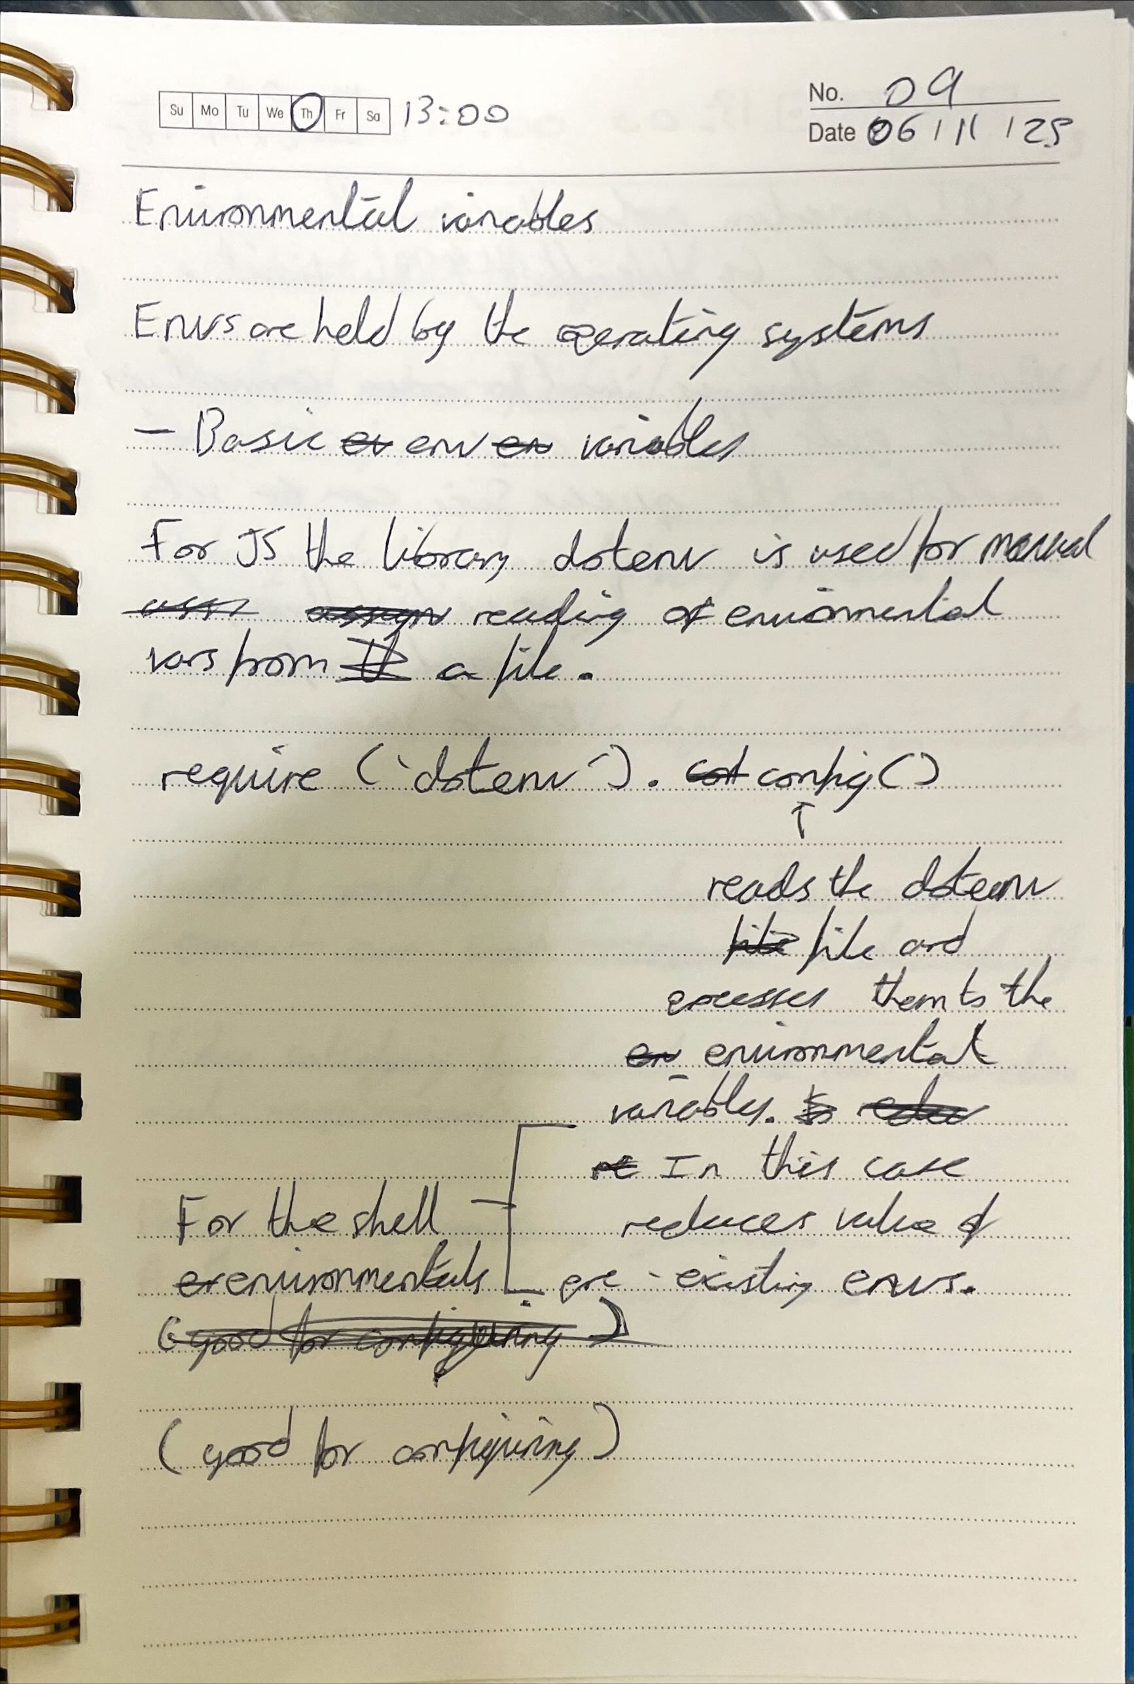 Su Mo Tu We Th Fr Sa 13:00
No. 09
Date 06/11/25
Environmental variables
Envs are held by the operating systems
- Basic env variables
For JS the library dotenv is used for manual
reading of environmental
vars from a file.
require ('dotenv'). config()
↑
reads the dotenv
file and
them to the
environmental
variables.
In this case
reduces value of
pre-existing envs.
For the shell
environmentals
(good for configuring)
(good for configuring)